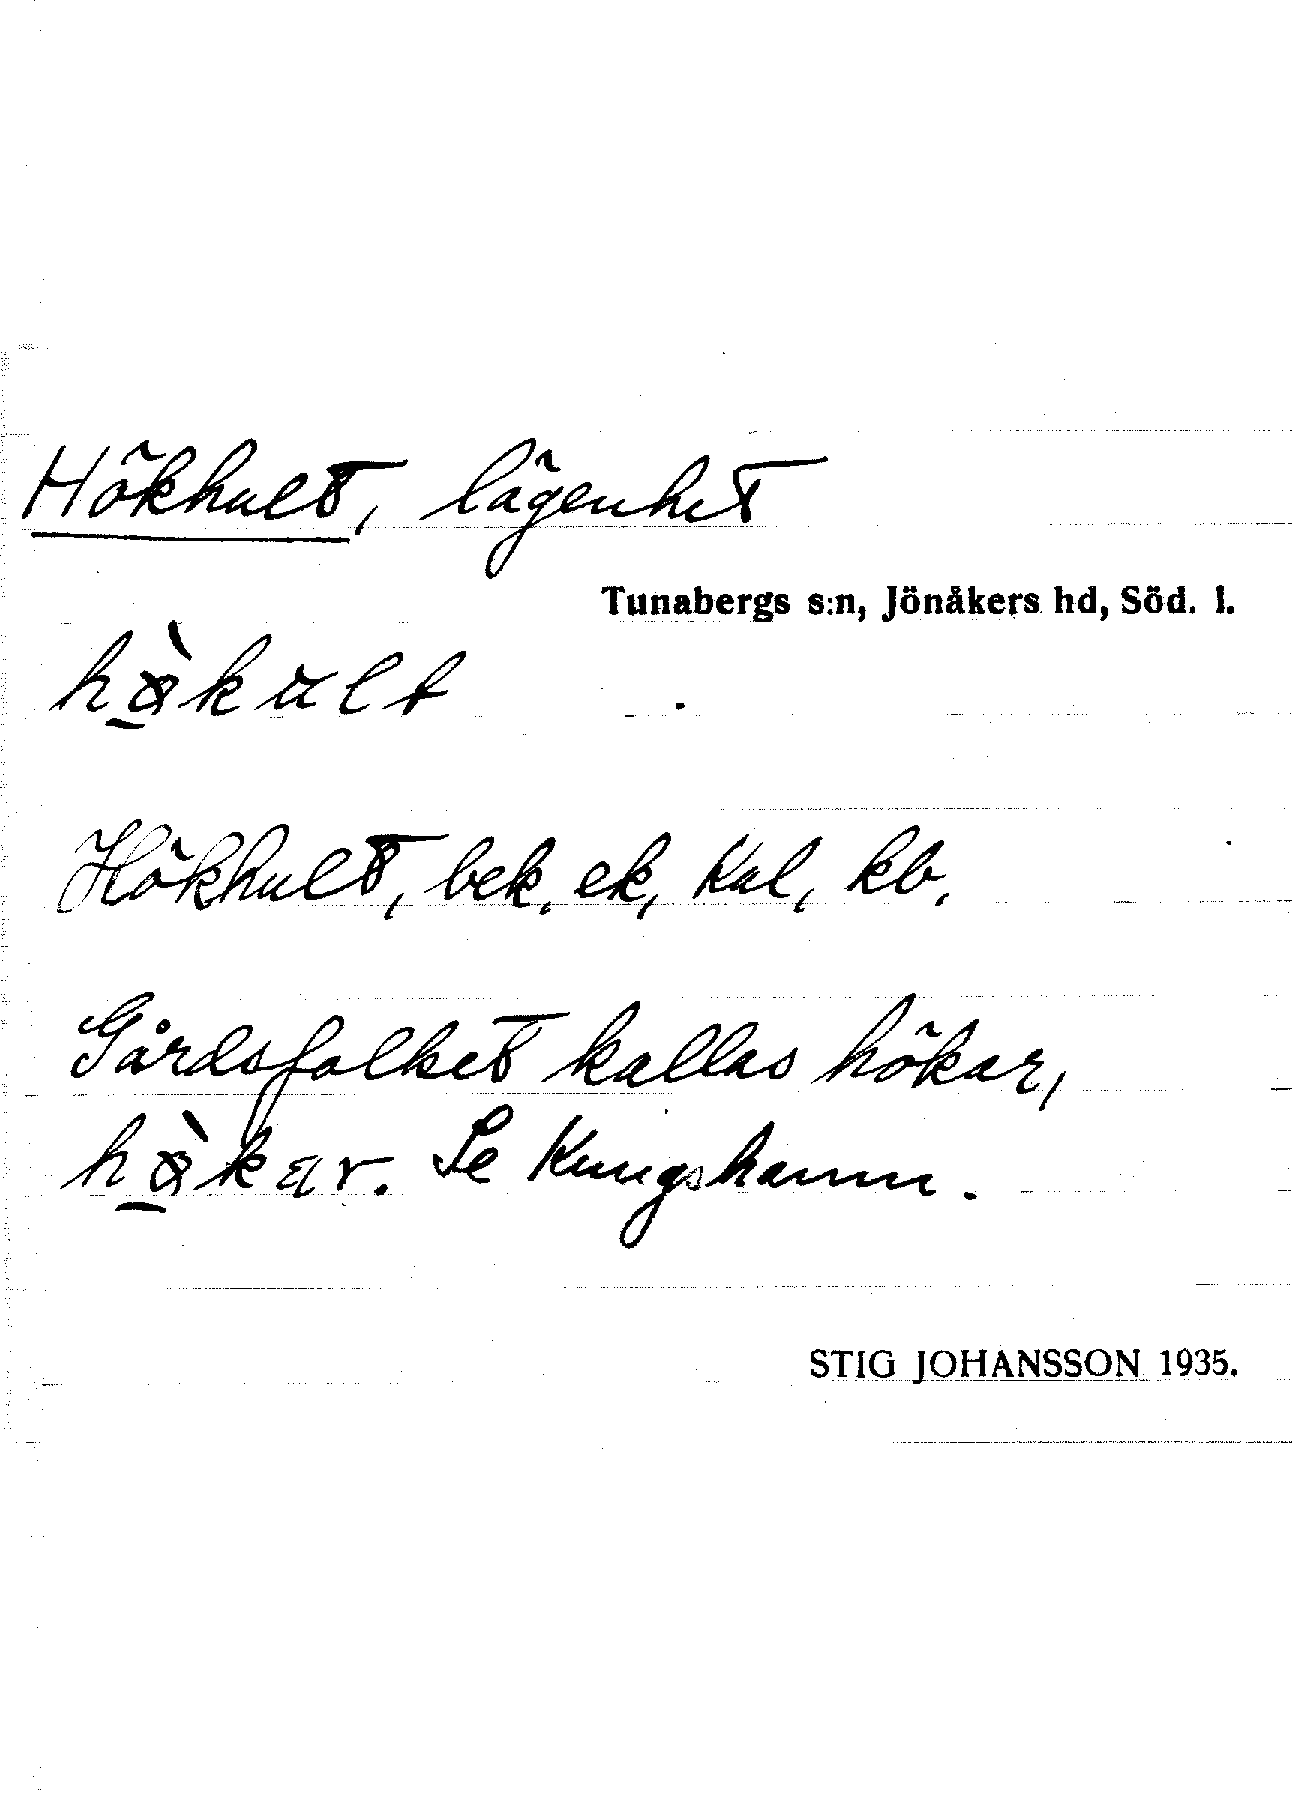 Hökhult, lägenhet
Tunabergs s:n, Jönåkers hd, Söd. l.
Hökhult, bek. ek, kal, kb,
Gårdsfolket kallas hökar,
Se Kungshamn.
STIG JOHANSSON 1935.